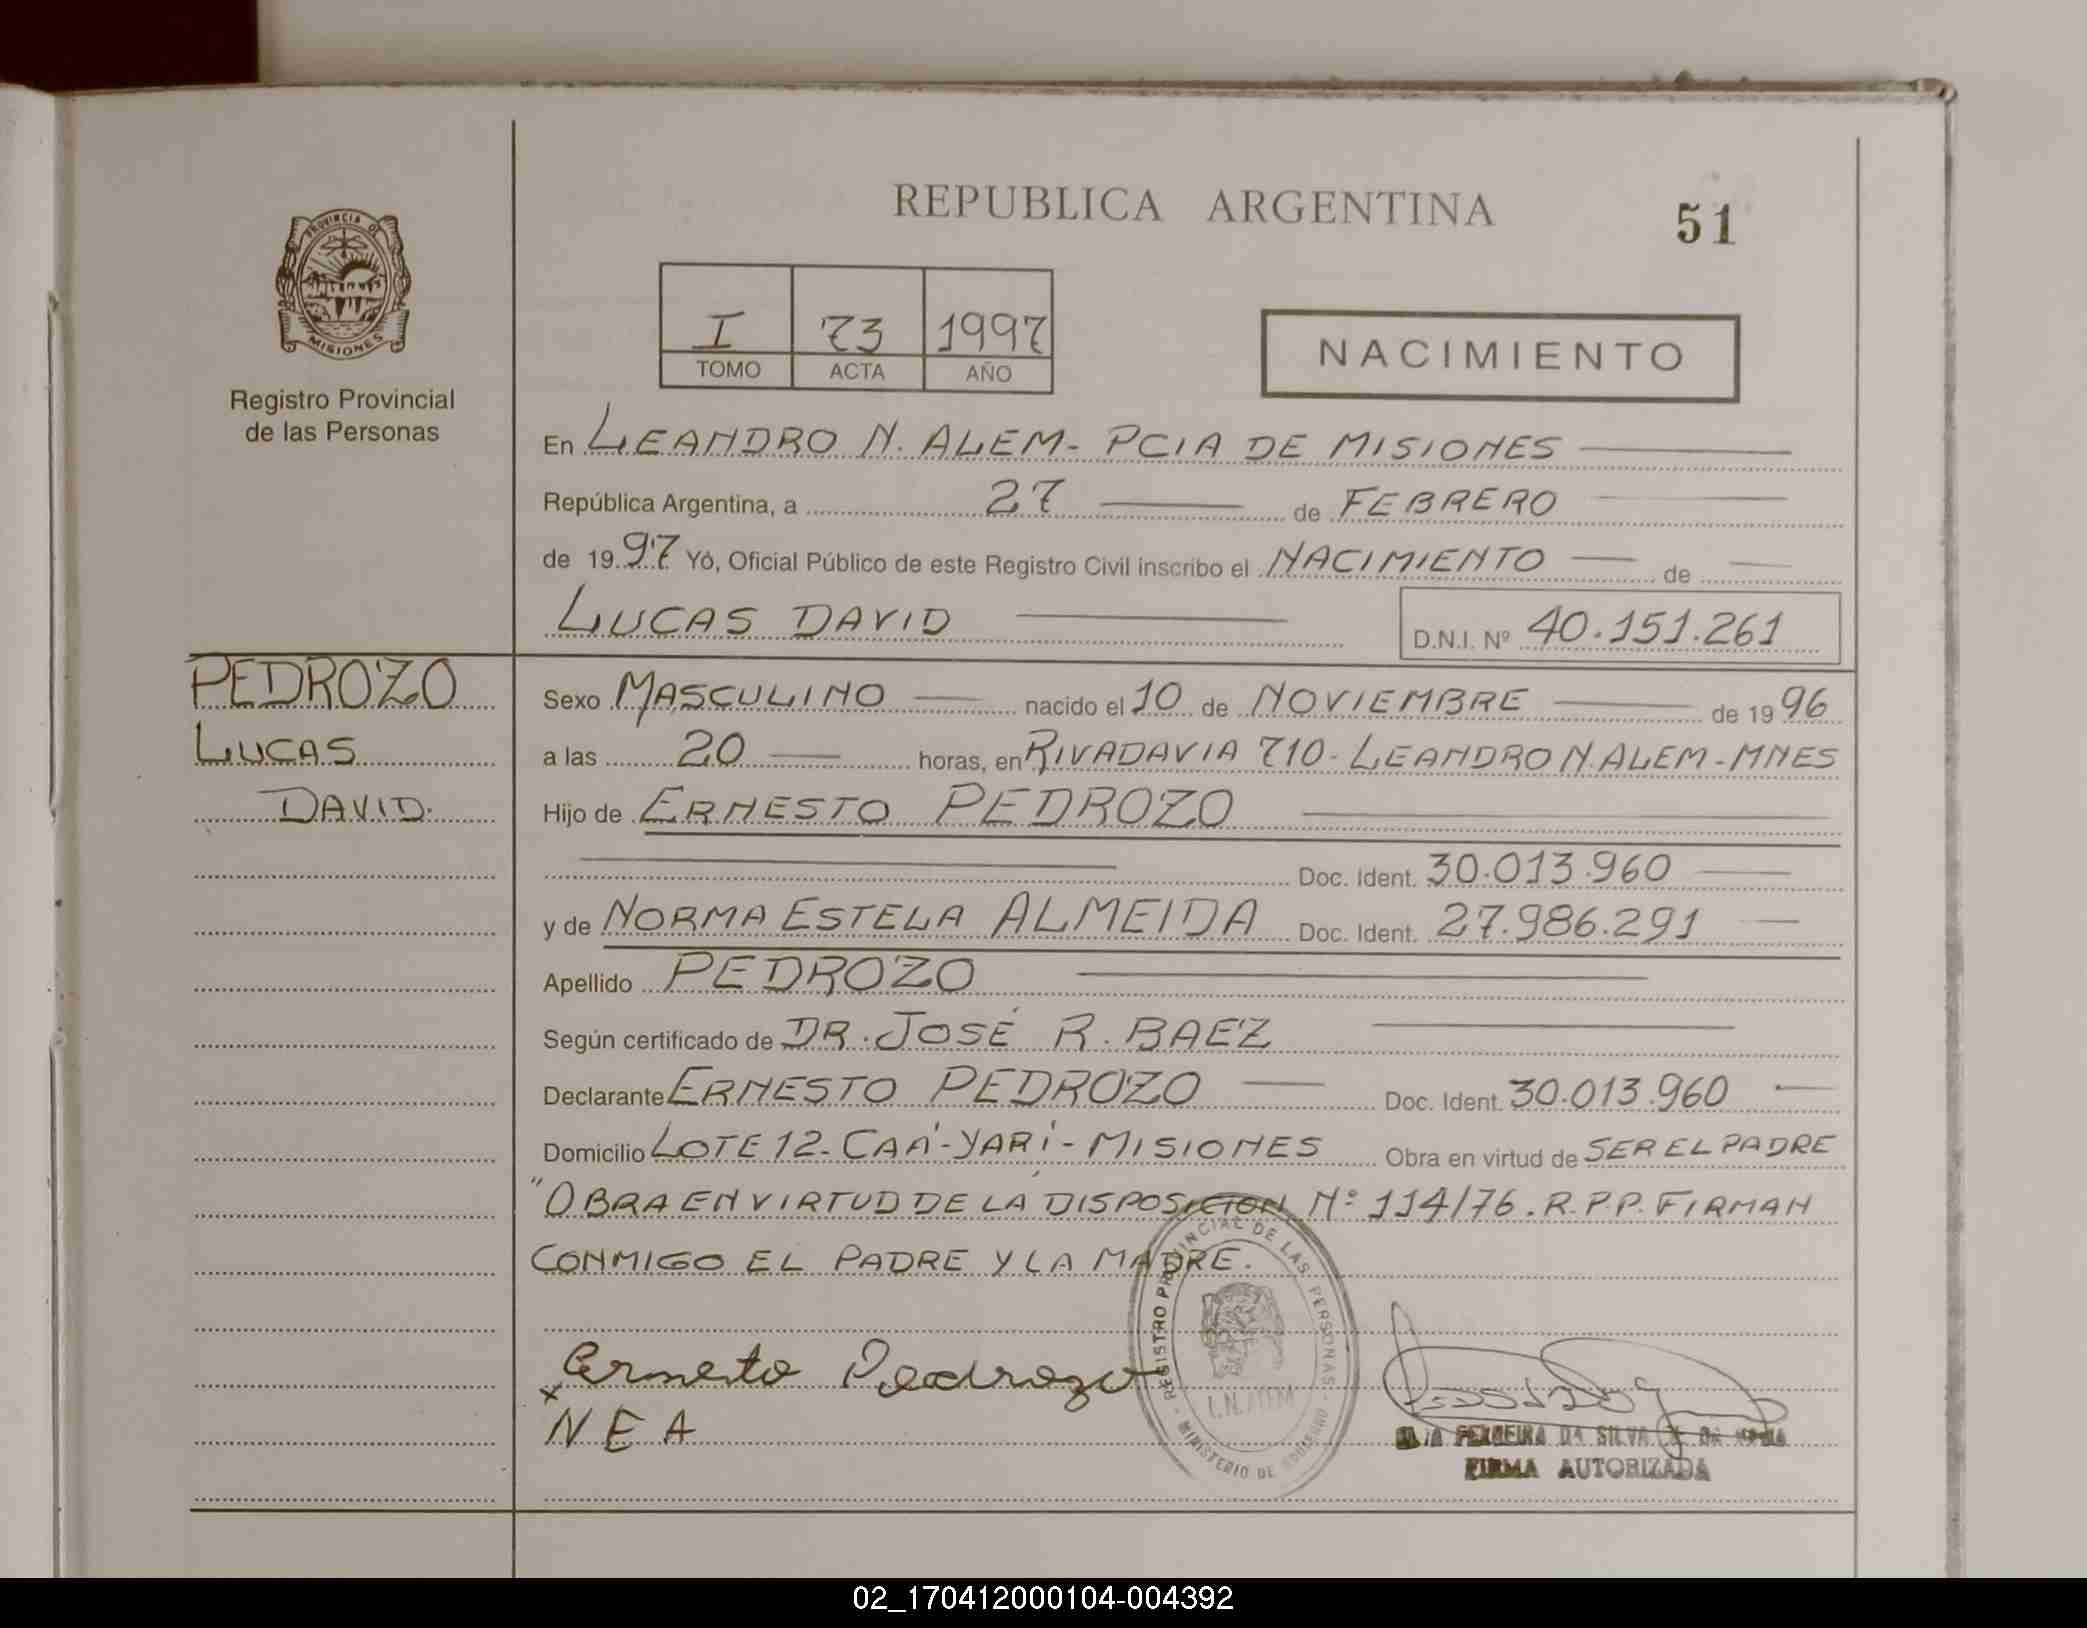 REPUBLICA ARGENTINA
51
PROVINCIA DE
MISIONES
Registro Provincial
de las Personas
I 73 1997
TOMO ACTA AÑO
NACIMIENTO
En LEANDRO N. ALEM - PCIA DE MISIONES
República Argentina, a 27 de FEBRERO
de 1997 Yo, Oficial Público de este Registro Civil inscribo el NACIMIENTO de
LUCAS DAVID D.N.I. Nº 40.151.261
PEDROZO
LUCAS
DAVID.
Sexo MASCULINO nacido el 10 de NOVIEMBRE de 1996
a las 20 horas, en RIVADAVIA 710 - LEANDRO N. ALEM - MNES
Hijo de ERNESTO PEDROZO
Doc. Ident. 30.013.960
y de NORMA ESTELA ALMEIDA Doc. Ident. 27.986.291
Apellido PEDROZO
Según certificado de DR. JOSÉ R. BAEZ
Declarante ERNESTO PEDROZO Doc. Ident. 30.013.960
Domicilio LOTE 12 - CAÁ-YARÍ - MISIONES Obra en virtud de SER EL PADRE
"OBRA EN VIRTUD DE LA DISPOSICIÓN Nº 114/76. R.P.P. FIRMAN
CONMIGO EL PADRE Y LA MADRE.
Ernesto Pedrozo
x NEA
REGISTRO PROVINCIAL DE LAS PERSONAS - MINISTERIO DE GOBIERNO -
L.N. ALEM
FERREIRA DA SILVA
FIRMA AUTORIZADA
02_170412000104-004392